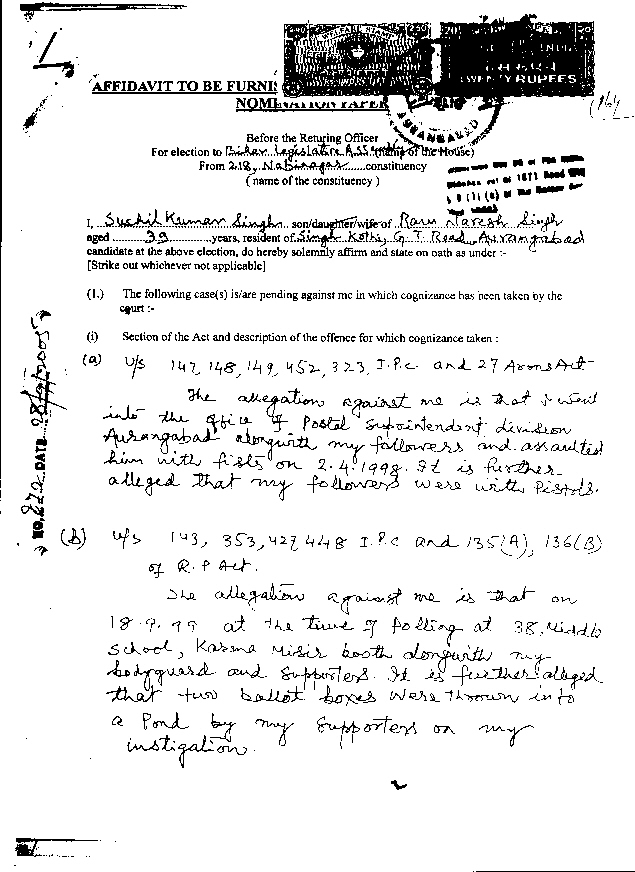 AFFIDAVIT TO BE FURNIS
NOMINATION PAPER
TWENTY RUPEES
AURANGABAD
Before the Returing Officer
For election to Bihar Legislative ASS (name of the House)
From 218, Nabinagar constituency
( name of the constituency )
I, Sushil Kumar Singh son/daughter/wife of Ram Naresh Singh
aged 39 years, resident of Singh Kothi, G T Road, Aurangabad
candidate at the above election, do hereby solemnly affirm and state on oath as under :-
[Strike out whichever not applicable]
(1.) The following case(s) is/are pending against me in which cognizance has been taken by the
court :-
(i) Section of the Act and description of the offence for which cognizance taken :
(a) u/s 147, 148, 149, 452, 323, I.P.C. and 27 Arms Act
The allegation against me is that I went
into the office of Postal Supointendent division
Aurangabad alongwith my followers and assaulted
him with fists on 2.4.1998. It is further
alleged that my followers were with Pistols.
NO. DATE
(b) u/s 143, 353, 427, 448 I.P.C and 135(A), 136(B)
of R.P Act.
The allegation against me is that on
18.9.99 at the time of Polling at 38, Middle
School, Karma Misir booth alongwith my
bodyguard and supporters. It is further alleged
that two ballot boxes were thrown into
a Pond by my supporters on my
instigation.